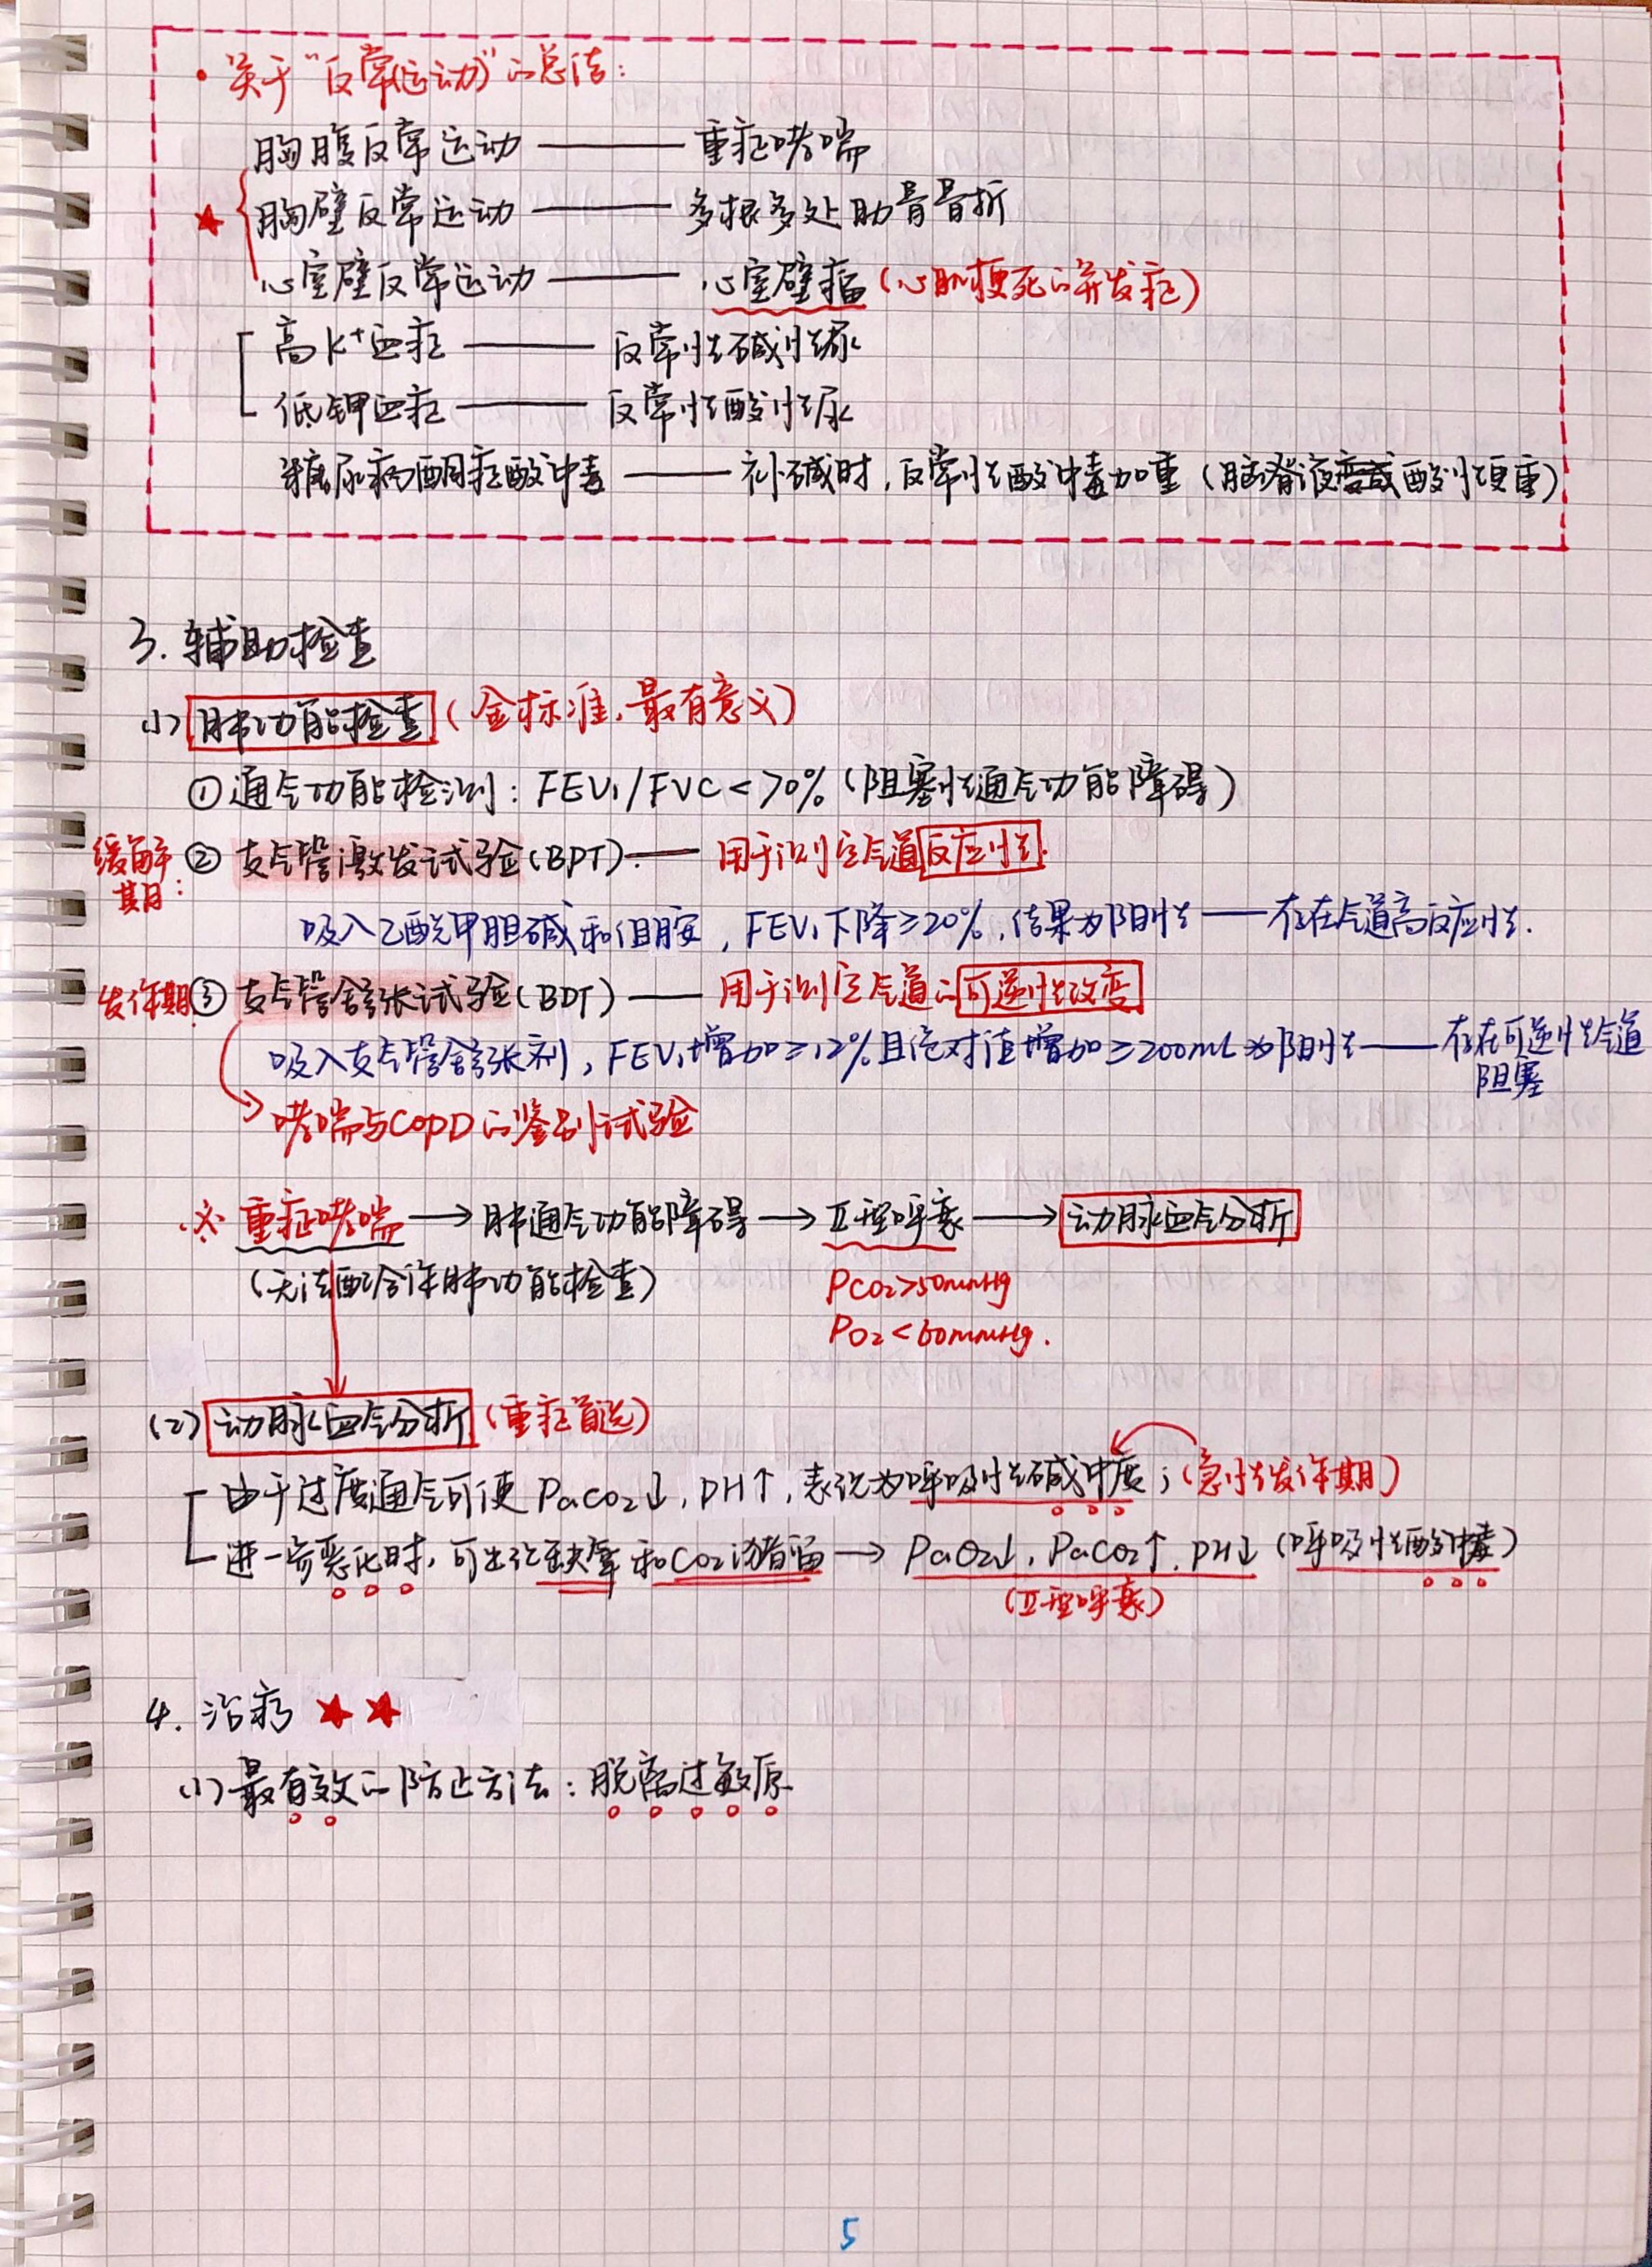 ·关于"反常(运动)"的总结:
胸腹反常运动——重症哮喘
★胸壁反常运动——多根多处肋骨骨折
心室壁反常运动——心室壁瘤(心肌梗死的并发症)
高K⁺血症——反常性碱性尿
低钾血症——反常性酸性尿
糖尿病酮症酸中毒——补碱时,反常性酸中毒加重(脑脊液变成酸性更重)
3.辅助检查
(1)肺功能检查(金标准、最有意义)
①通气功能检测:FEV₁/FVC<70%(阻塞性通气功能障碍)
缓解期:②支气管激发试验(BPT).——用于测定气道反应性.
吸入乙酰甲胆碱和组胺,FEV₁下降≥20%,结果为阳性——存在气道高反应性.
发作期:③支气管舒张试验(BDT)——用于测定气道的可逆性改变
吸入支气管舒张剂,FEV₁增加≥12%且绝对值增加≥200mL为阳性——存在可逆性气道
阻塞
→哮喘与COPD的鉴别试验
※重症哮喘→肺通气功能障碍→Ⅱ型呼衰→动脉血气分析
(无法配合作肺功能检查)
PCO₂>50mmHg
PO₂<60mmHg.
(2)动脉血气分析(重症首选)
由于过度通气可使PaCO₂↓,PH↑,表现为呼吸性碱中毒;(急性发作期)
进一步恶化时,可出现缺氧和CO₂潴留→PaO₂↓,PaCO₂↑.PH↓(呼吸性酸中毒)
(Ⅱ型呼衰)
4.治疗★★
(1)最有效的防止方法:脱离过敏原
5